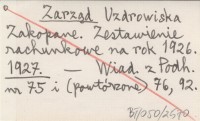 Zarząd Uzdrowiska
Zakopane. Zestawienie
rachunkowe na rok 1926.
1927. — Wiad. z Podh.
nr 75 i (powtórzone) 76, 92.
BJ/950/2570